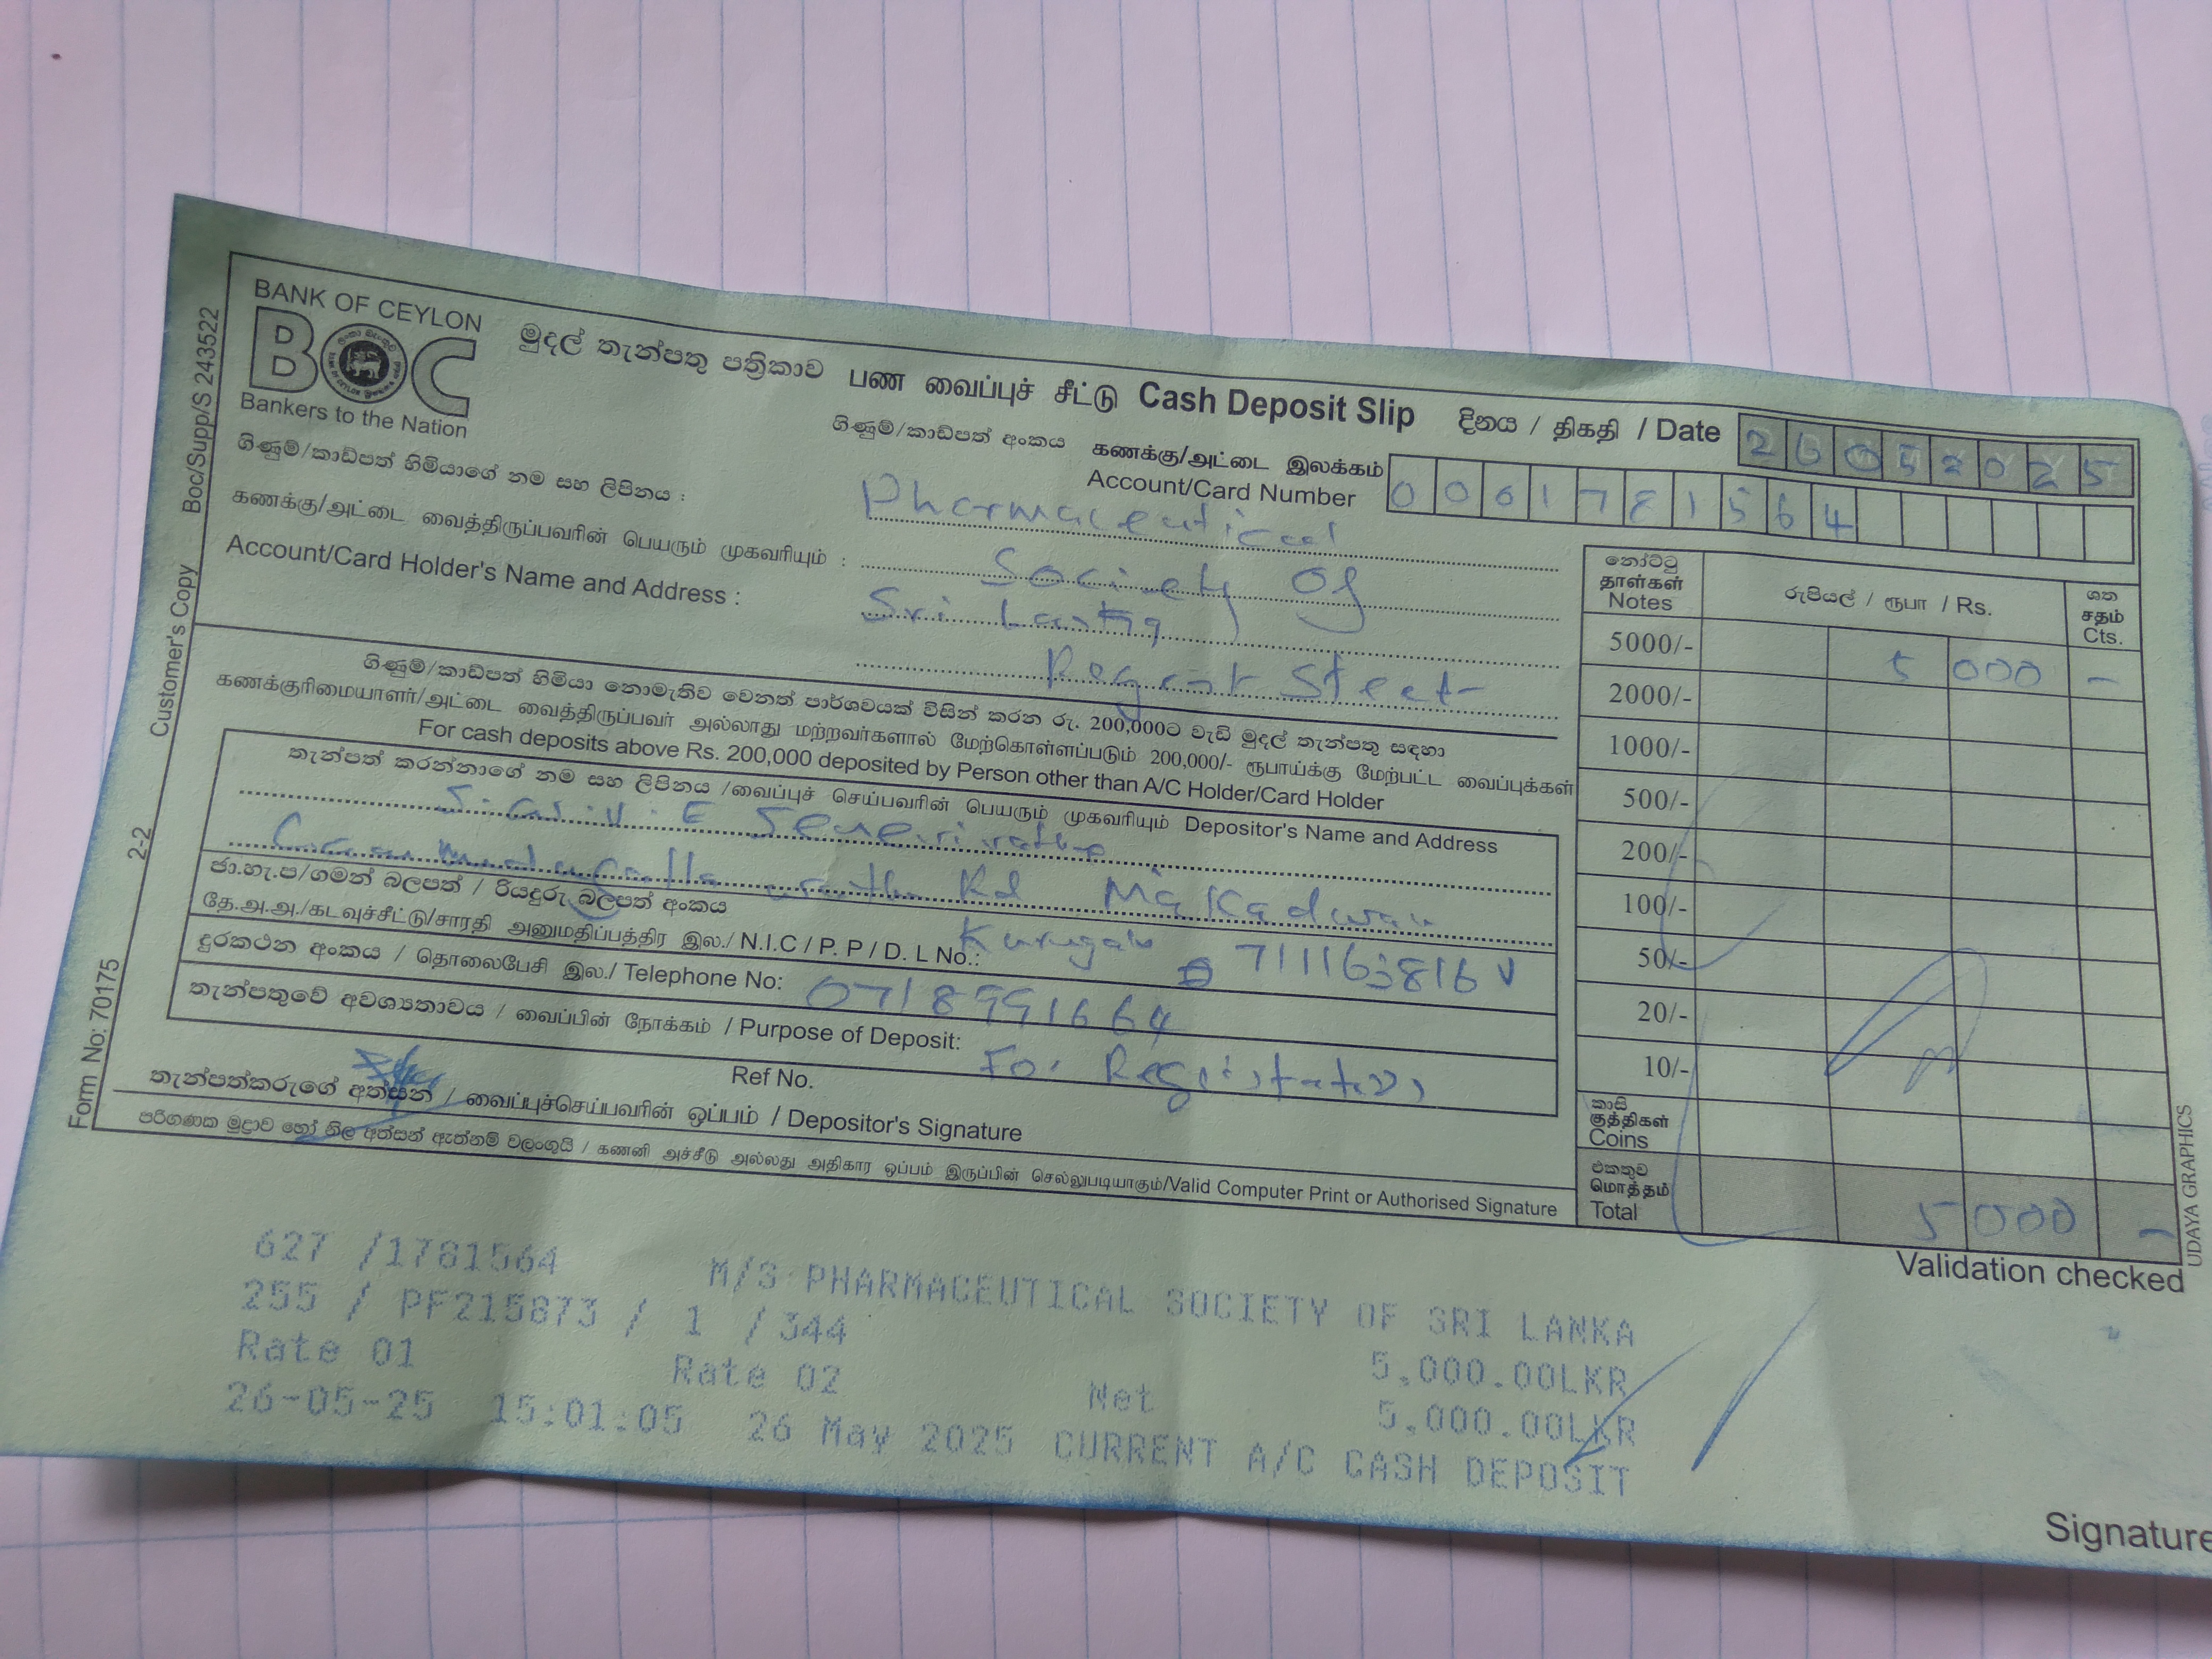 BANK OF CEYLON
BOC
Bankers to the Nation
මුදල් තැන්පතු පත්‍රිකාව பண வைப்புச் சீட்டு Cash Deposit Slip
දිනය / திகதி / Date 26052025
ගිණුම්/කාඩ්පත් අංකය கணக்கு/அட்டை இலக்கம்
Account/Card Number 0061781564
ගිණුම්/කාඩ්පත් හිමියාගේ නම සහ ලිපිනය :
கணக்கு/அட்டை வைத்திருப்பவரின் பெயரும் முகவரியும் :
Account/Card Holder's Name and Address :
Pharmaceutical
Society Of
Sri Lanka
Regent Street
ගිණුම්/කාඩ්පත් හිමියා නොමැතිව වෙනත් පාර්ශවයක් විසින් කරන රු. 200,000ට වැඩි මුදල් තැන්පතු සඳහා
கணக்குரிமையாளர்/அட்டை வைத்திருப்பவர் அல்லாது மற்றவர்களால் மேற்கொள்ளப்படும் 200,000/- ரூபாய்க்கு மேற்பட்ட வைப்புக்கள்
For cash deposits above Rs. 200,000 deposited by Person other than A/C Holder/Card Holder
තැන්පත් කරන්නාගේ නම සහ ලිපිනය /வைப்புச் செய்பவரின் பெயரும் முகவரியும் Depositor's Name and Address
E Senevirathne
Rd Makadwan
ජා.හැ.ප/ගමන් බලපත් / රියදුරු බලපත් අංකය
தே.அ.அ./கடவுச்சீட்டு/சாரதி அனுமதிப்பத்திர இல./ N.I.C / P. P / D. L No.: 711163816 V
දුරකථන අංකය / தொலைபேசி இல./ Telephone No: 0718991664
තැන්පතුවේ අවශ්‍යතාවය / வைப்பின் நோக்கம் / Purpose of Deposit: For Registration
Ref No.
තැන්පත්කරුගේ අත්සන / வைப்புச்செய்பவரின் ஒப்பம் / Depositor's Signature
පරිගණක මුද්‍රාව හෝ නිල අත්සන් ඇත්නම් වලංගුයි / கணனி அச்சீடு அல்லது அதிகார ஒப்பம் இருப்பின் செல்லுபடியாகும்/Valid Computer Print or Authorised Signature
නෝට්ටු
தாள்கள்
Notes
රුපියල් / ரூபா / Rs.
ශත
சதம்
Cts.
5000/- 5 000 -
2000/-
1000/-
500/-
200/-
100/-
50/-
20/-
10/-
කාසි
குத்திகள்
Coins
එකතුව
மொத்தம்
Total 5 000 -
Validation checked
627 /1781564 M/S PHARMACEUTICAL SOCIETY OF SRI LANKA
255 / PF215873 / 1 /344 5,000.00LKR
Rate 01 Rate 02 Net 5,000.00LKR
26-05-25 15:01:05 26 May 2025 CURRENT A/C CASH DEPOSIT
Signature
Form No: 70175 2-2 Customer's Copy Boc/Supp/S 243522
UDAYA GRAPHICS